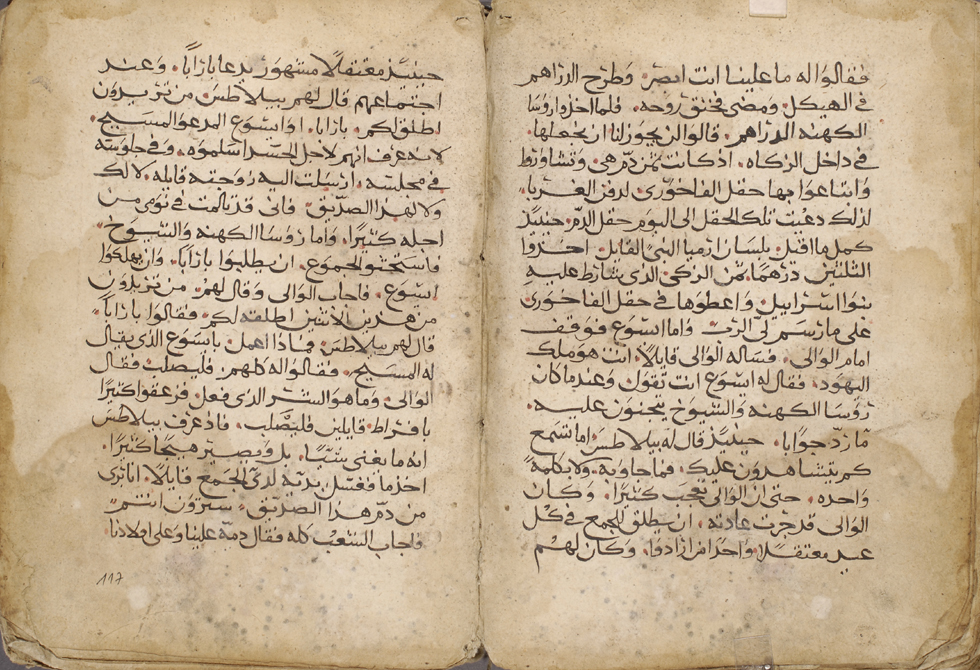 فقالوا له ما علينا انت ابصر. وطرح الدراهم
في الهيكل ومضى فخنق روحه. فلما اخذوا روسا
الكهنه الدراهم. قالوا لن يجوز لنا ان نجعلها.
في داخل الزكاه. اذ كانت ثمن دم هي. وتشاوروا
وابتاعوا بها حقل الفاخوري لدفن الغربا.
لذلك دعيت تلك الحقل الى اليوم حقل الدم. حينيذ
كمل ما اقيل بلسان ارميا النبي القايل. اخذوا
الثلثين درهما. ثمن الزكي الذي شارط عليه
بنوا اسراييل. واعطوها في حقل الفاخوري
على ما رسم لي الرب. واما اسوع فوقف
امام الوالي. فساله الوالي قايلا. انت هو ملك
اليهود. فقال له اسوع انت تقول وعند ما كان
روسا الكهنه والشيوخ يتجنون عليه.
ما رد جوابا. حينيذ قال له بيلاطس اما تسمع
كم يتشاهدون عليك. فما جاوبه ولا بكلمة
واحده. حتى ان الوالي تعجب كثيرا. وكان
الوالي قد جرت عادته. ان يطلق للجمع في كل
عيد معتقلا واحدا من ارادوا. وكان لهم
حينيذ معتقلا مشهور يدعا بارابا. وعند
اجتماعهم قال لهم بيلاطس من تريدون
اطلق لكم. بارابا. او اسوع المدعو المسيح.
لانه عرف انهم لاجل الحسد اسلموه. وفي جلوسه
في مجلسه. ارسلت اليه زوجته قايله. لا لك
ولا لهذا الصديق فاني قد تالمت في نومي من
اجله كثيرا. واما روسا الكهنه والشيوخ
فاستحثوا الجموع. ان يطلبوا بارابا. وان يهلكوا
اسوع. فاجاب الوالي وقال لهم. من تريدون
من هذين الاثنين اطلقه لكم. فقالوا بارابا.
قال لهم بيلاطس. فماذا اعمل باسوع الذي يقال
له المسيح. فقالوا له كلهم. فليصلب فقال
الوالي. وما هو الشر الذي فعل فزعقوا كثيرا
بافراط قايلين فليصلب. فاذ عرف بيلاطس
انه ما يغني شيا. بل ويصير هيجا كثيرا.
اخذ ما فغسل يديه لدى الجمع قايلا. انا بري
من دم هذا الصديق. سترون انتم
فاجاب الشعب كله فقال دمه علينا وعلى اولادنا
117